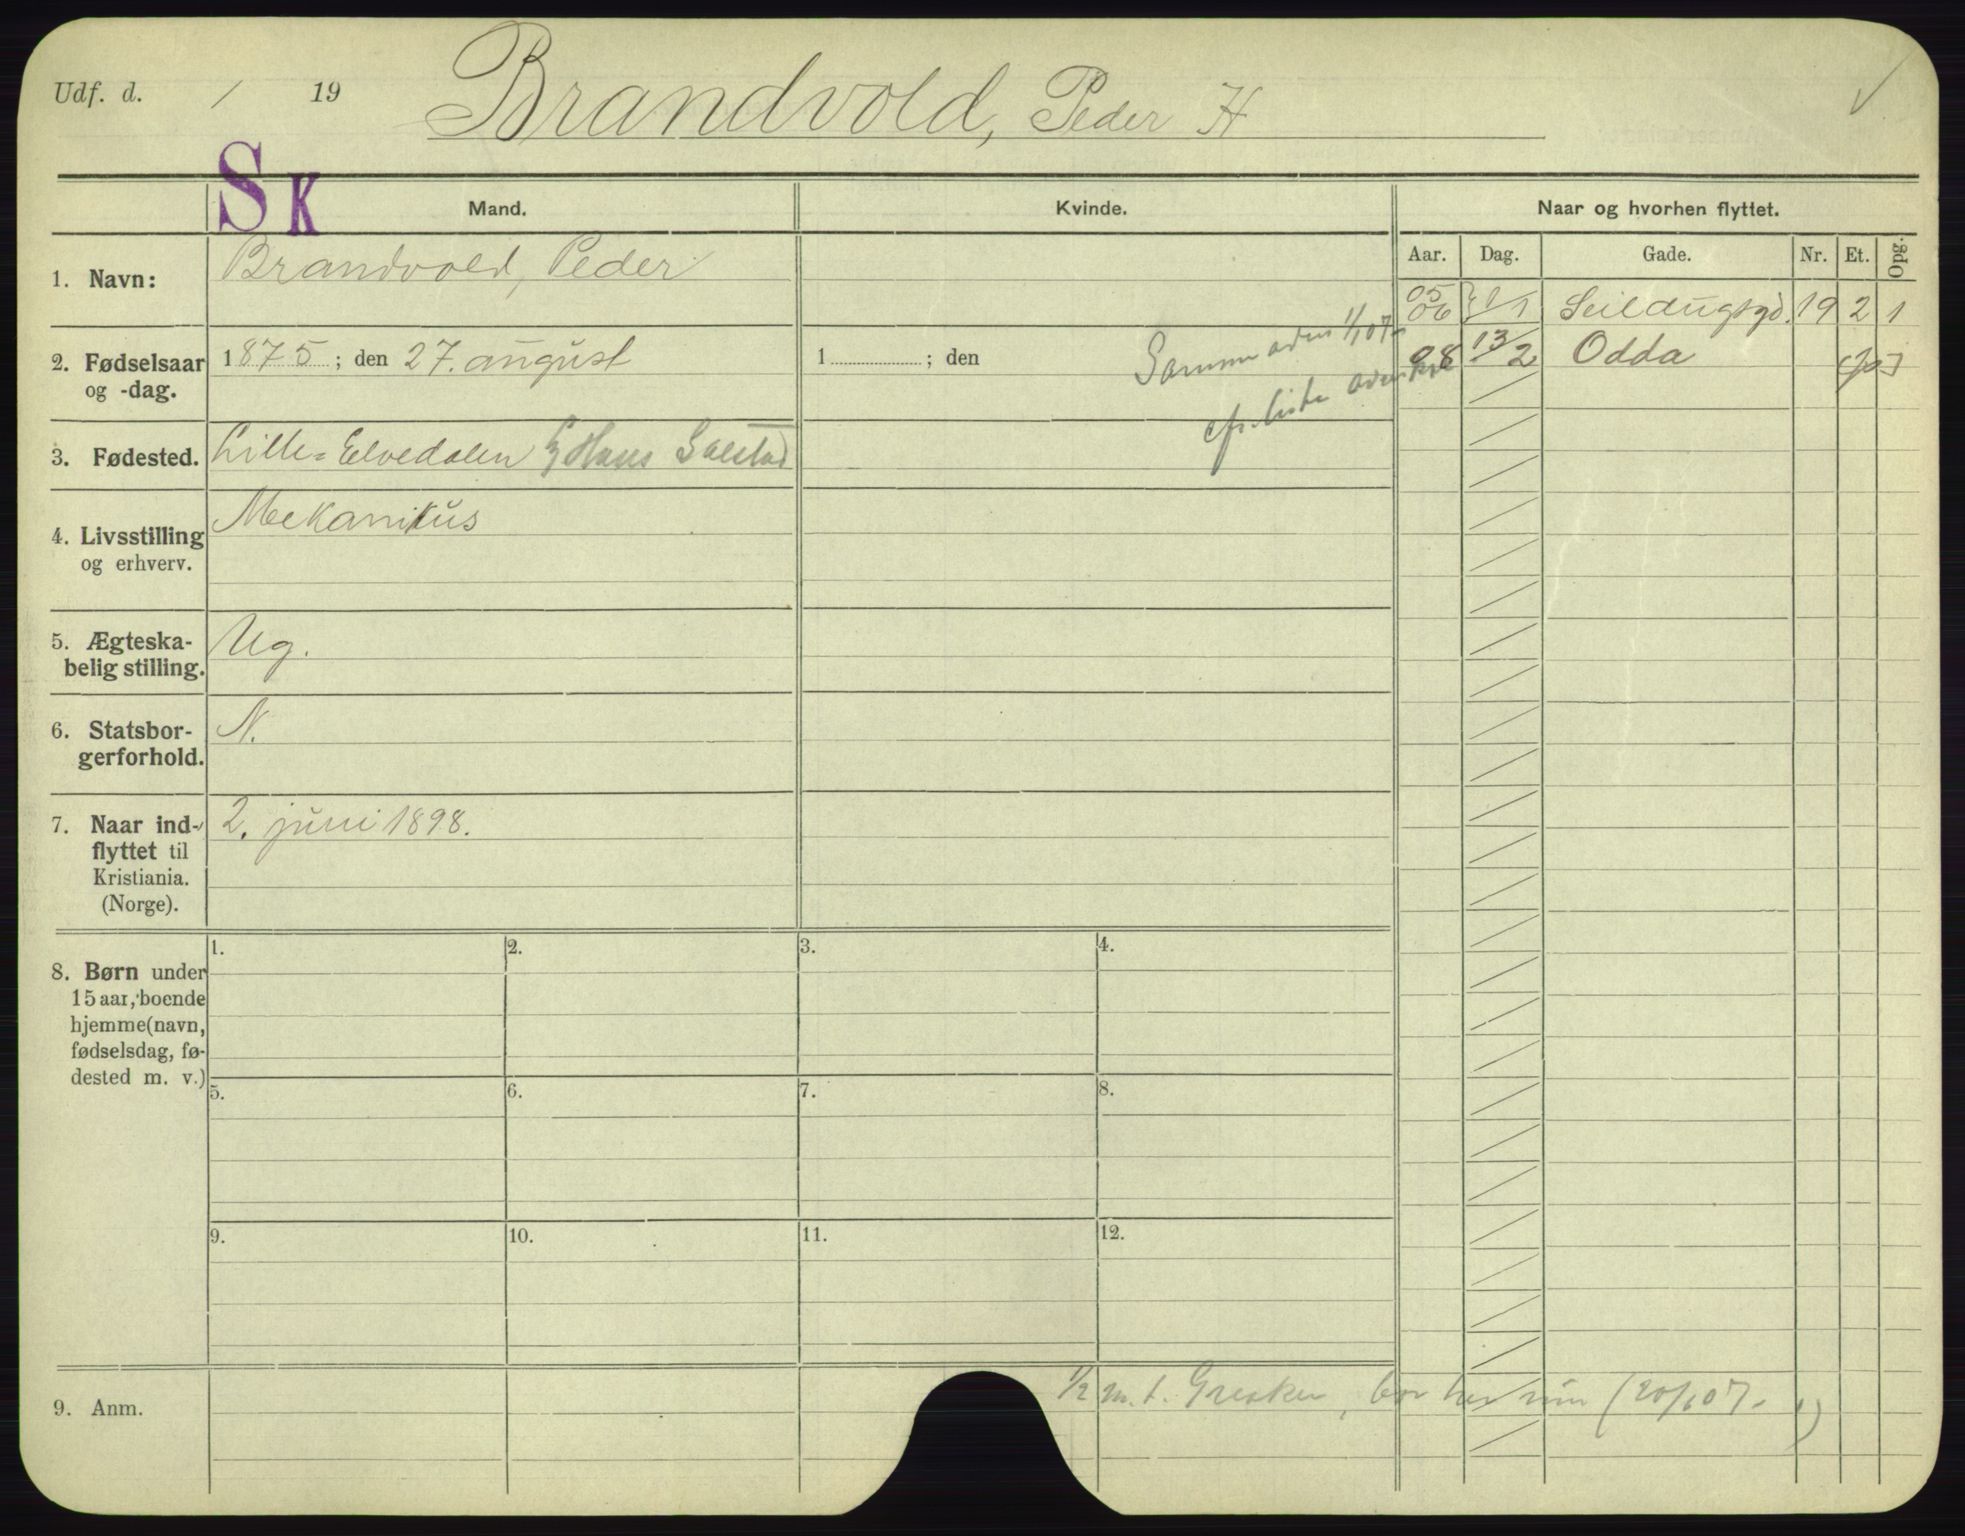 Udf. d. / 19
Brandvold, Peder H
S K
Mand.
Kvinde.
Naar og hvorhen flyttet.
Aar. Dag. Gade. Nr. Et. Opg.
1. Navn:
Brandvold, Peder
05
06 1/1 Seildugsgd. 19 2 1
2. Fødselsaar
og -dag.
1875; den 27. august
1 ; den
Samme adr. 1/1 07
08 13/2 Odda
cfr. liste
3. Fødested.
Lille=Elvedalen
4. Livsstilling
og erhverv.
Mekanikus
5. Ægteska-
belig stilling.
Ug.
6. Statsbor-
gerforhold.
N.
7. Naar ind-
flyttet til
Kristiania.
(Norge).
2. juni 1898.
8. Børn under
15 aar, boende
hjemme (navn,
fødselsdag, fø-
dested m. v.)
1. 2. 3. 4.
5. 6. 7. 8.
9. 10. 11. 12.
9. Anm.
1/2 m. t.